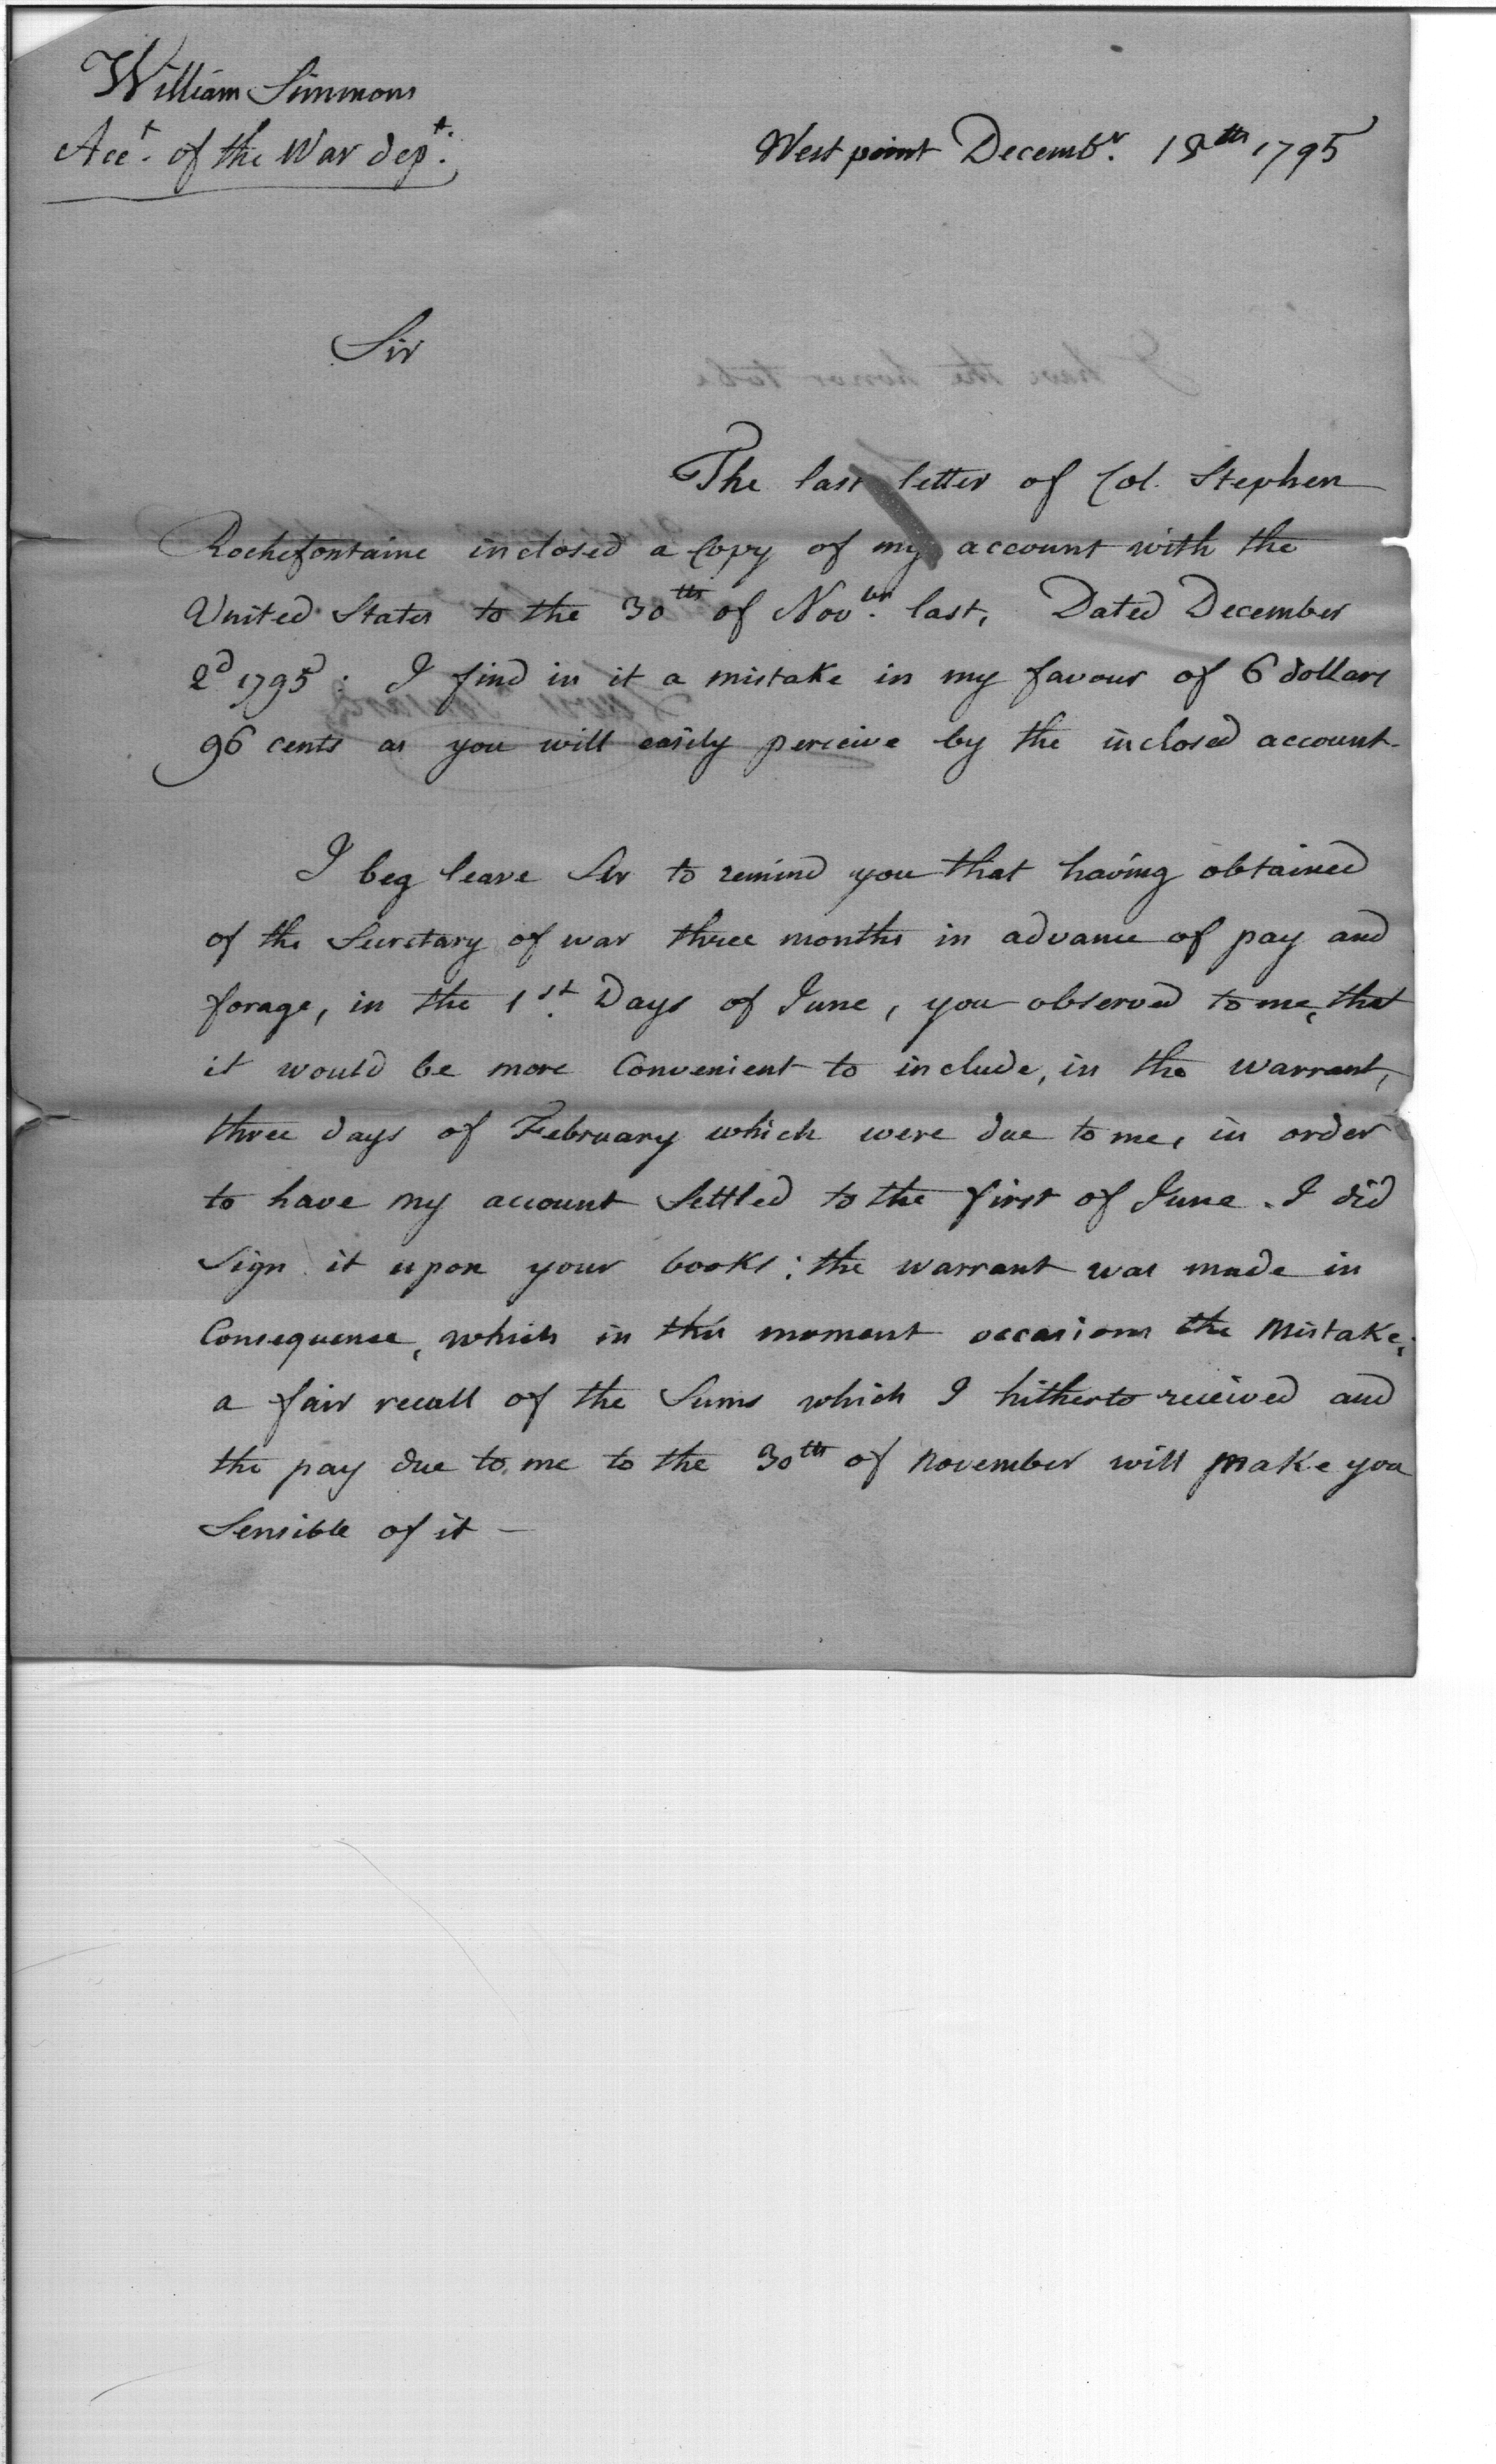 William Simmons
Acct. of the War dept.
West point Decembr. 18th 1795
Sir
I have the honor to be
The last letter of Col. Stephen
Rochefontaine inclosed a Copy of my account with the
United States to the 30th of Novbr. last, Dated December
2d 1795: I find in it a mistake in my favour of 6 dollars
96 cents as you will easily perceive by the inclosed account.
I beg leave Sir to remind you that having obtained
of the Secretary of war three months in advance of pay and
forage, in the 1st. Days of June, you observed to me, that
it would be more Convenient to include, in the warrant,
three days of February which were due to me, in order
to have my account Settled to the first of June. I did
Sign it upon your books; the warrant was made in
Consequence, which in this moment occasions the Mistake;
a fair recall of the Sums which I hitherto received and
the pay due to me to the 30th of november will make you
Sensible of it —